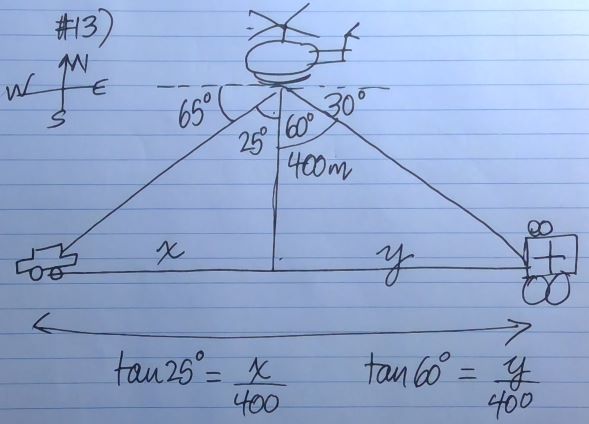 #13)
N
W E
S
65° 30°
25° 60°
400m
x y
tan 25° = x/400 tan 60° = y/400